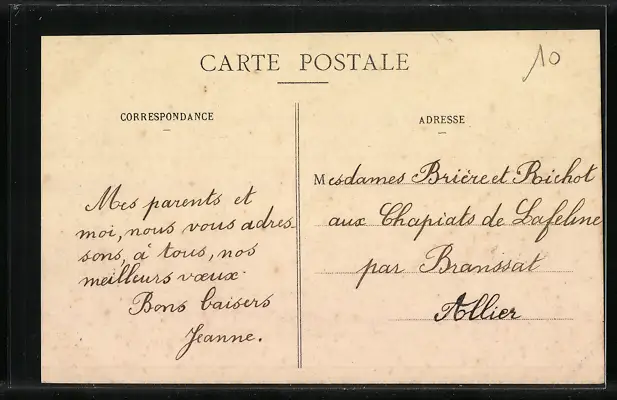 10
CARTE POSTALE
CORRESPONDANCE
Mes parents et
moi, nous vous adres
sons, à tous, nos
meilleurs vœux.
Bons baisers
Jeanne.
ADRESSE
Mesdames Brière et Richot
aux Chapiats de Lafeline
par Branssat
Allier